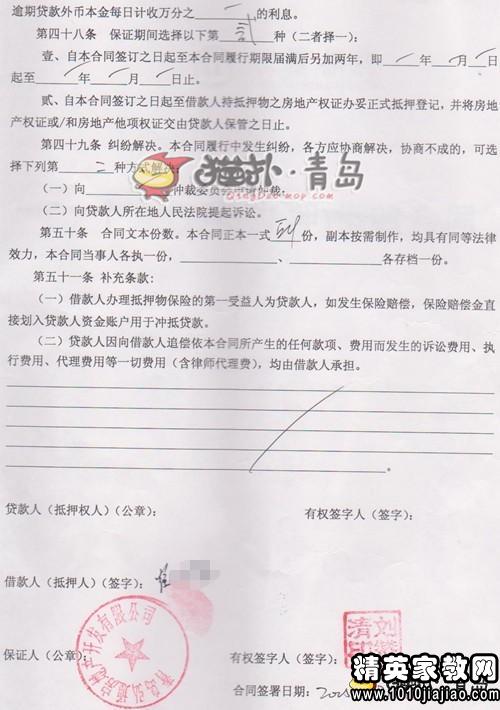 逾期贷款外币本金每日计收万分之 一 的利息。
第四十八条 保证期间选择以下第 贰 种（二者择一）：
壹、自本合同签订之日起至本合同履行期限届满后另加两年，即 年 月 日
起至 年 月 日止。
贰、自本合同签订之日起至借款人持抵押物之房地产权证办妥正式抵押登记，并将房
地产权证或/和房地产他项权证交由贷款人保管之日止。
第四十九条 纠纷解决。本合同履行中发生纠纷，各方应协商解决，协商不成的，可选
择下列第 二 种方式解决：
猫扑·青岛
QingDao·mop.com
（一）向 仲裁委员会申请仲裁，
（二）向贷款人所在地人民法院提起诉讼。
第五十条 合同文本份数。本合同正本一式 份，副本按需制作，均具有同等法律
效力，本合同当事人各执一份，____________、____________各存档一份。
第五十一条 补充条款：
（一）借款人办理抵押物保险的第一受益人为贷款人，如发生保险赔偿，保险赔偿金直
接划入贷款人资金账户用于冲抵贷款。
（二）贷款人因向借款人追偿依本合同所产生的任何款项、费用而发生的诉讼费用、执
行费用、代理费用等一切费用（含律师代理费），均由借款人承担。
贷款人（抵押权人）（公章）： 有权签字人（签字）：
借款人（抵押人）（签字）：
保证人（公章）： 有权签字人（签字）：
合同签署日期：
精英家教网
www.1010jiajiao.com